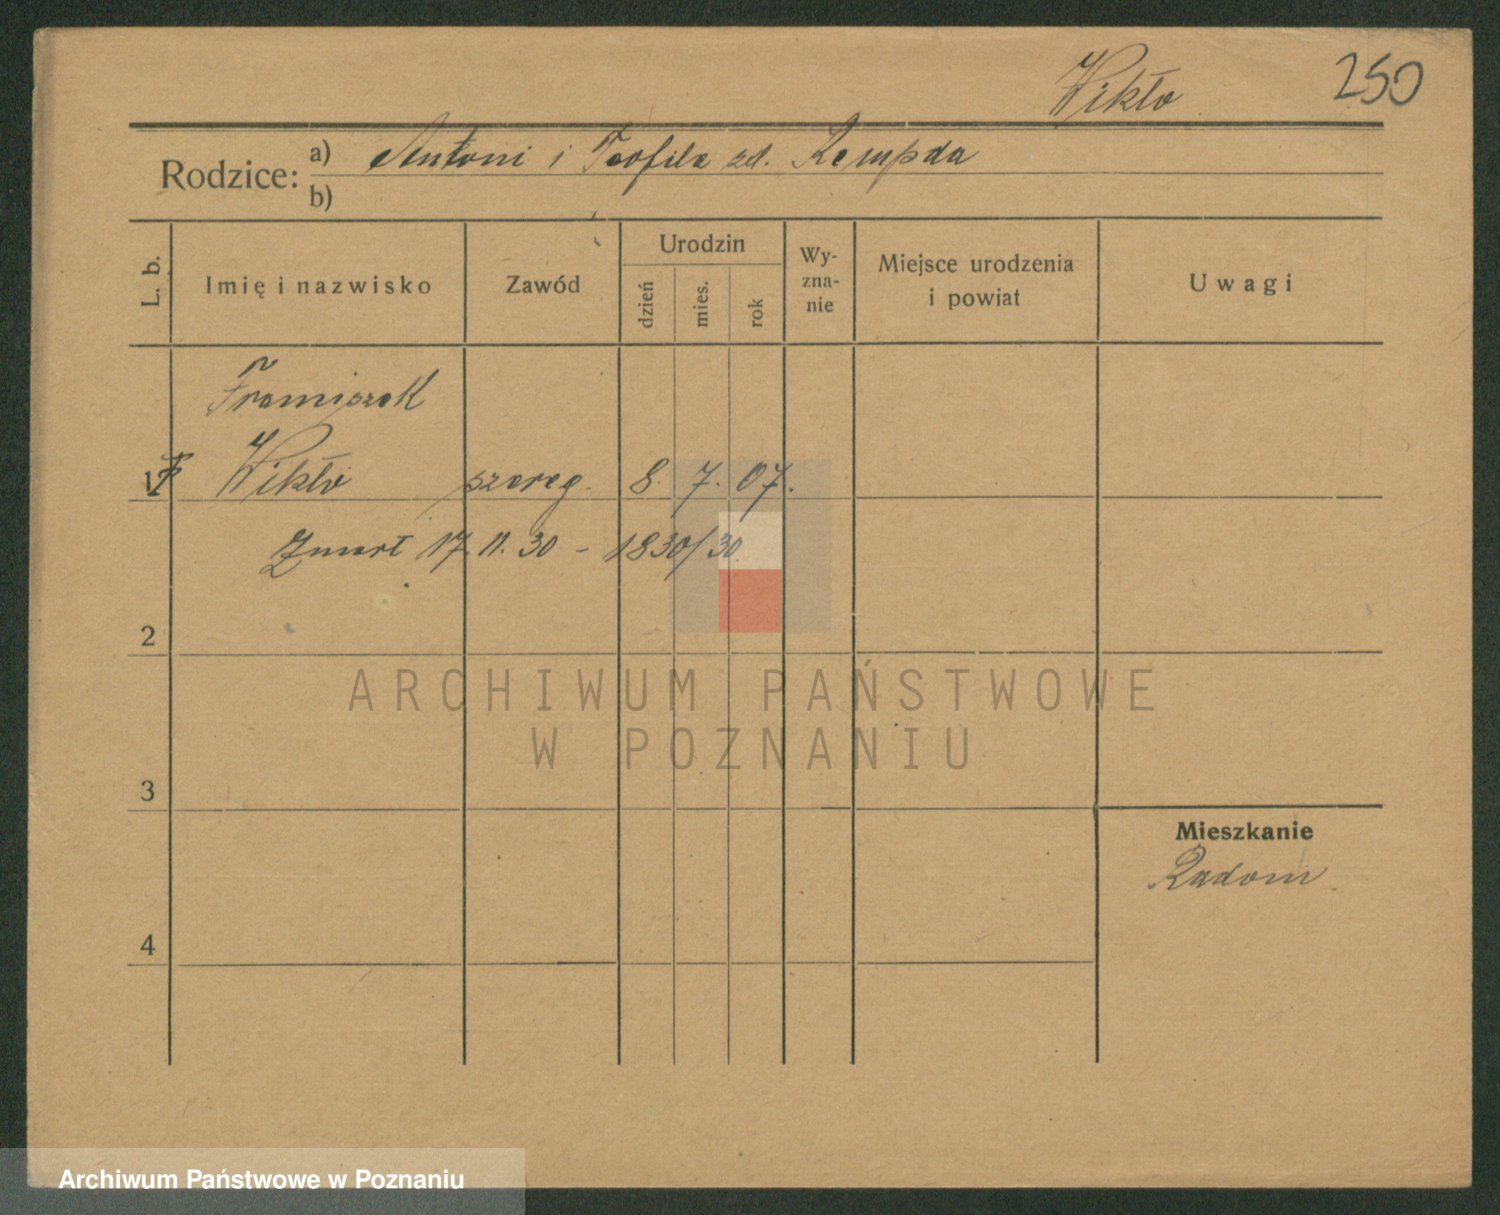 Wikło 250
Rodzice: a) Antoni i Teofila zd. Kempda
b)
L. b. Imię i nazwisko Zawód Urodzin dzień mies. rok Wy-zna-nie Miejsce urodzenia i powiat Uwagi
Franiszek
1 Wikło szereg. 8. 7. 07.
Zmarł 17.11.30 - 1830/30
2
ARCHIWUM PAŃSTWOWE
W POZNANIU
3
Mieszkanie
Radom
4
Archiwum Państwowe w Poznaniu